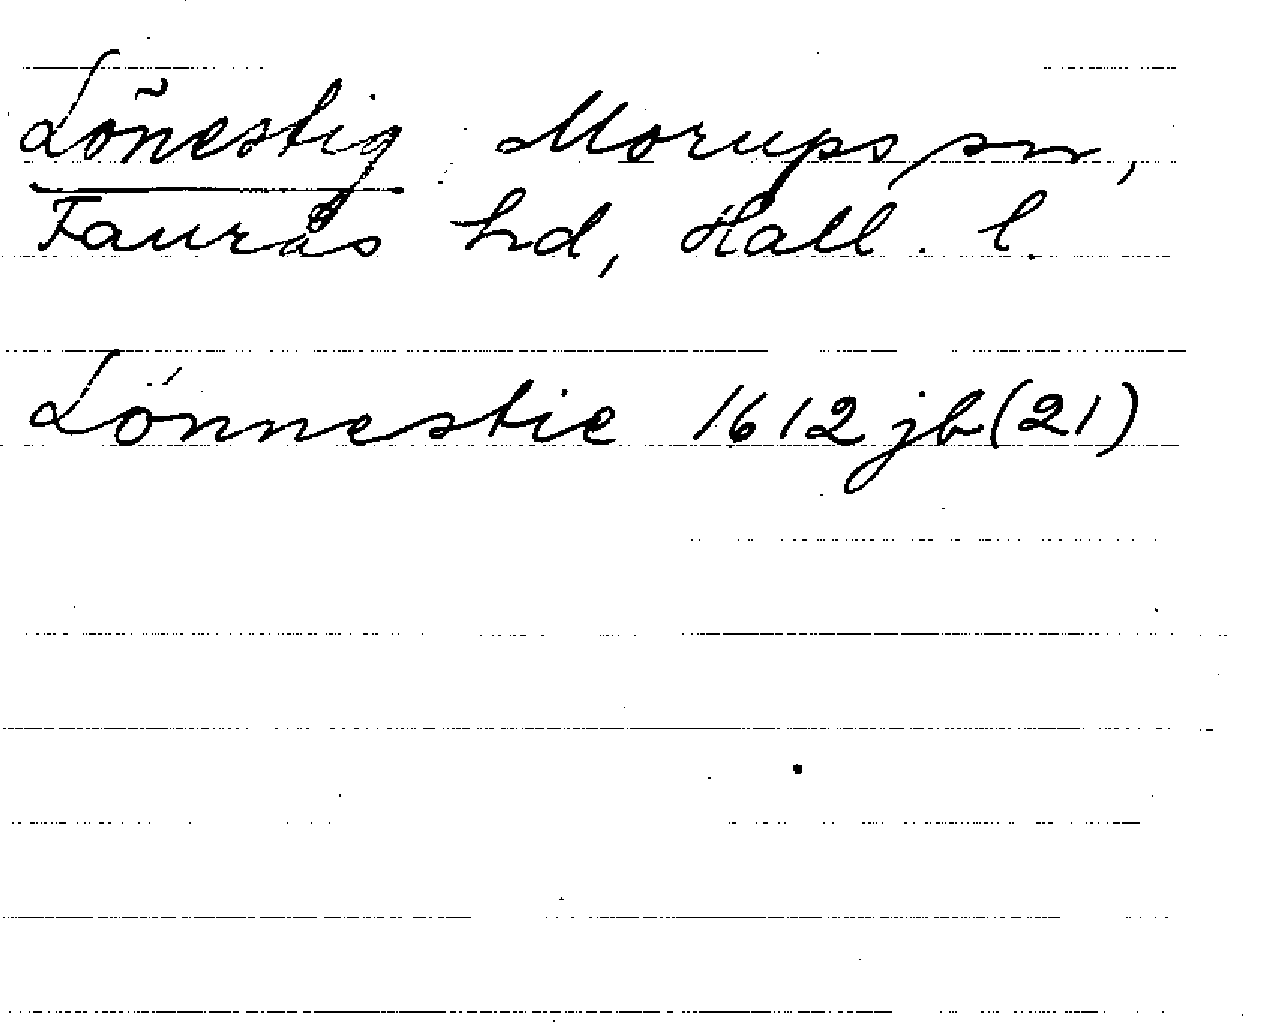 Lönestig Morups sn,
Faurås hd, Hall. l.
Lönnestie 1612 jb (21)